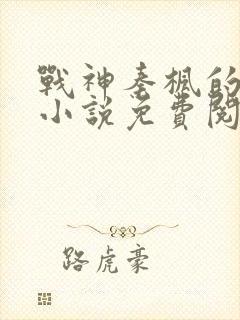 戰神秦楓的
小說免費閱
路虎豪